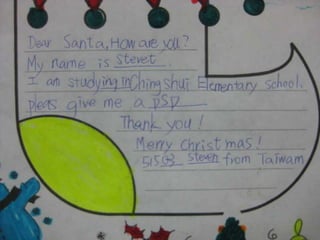 Dear Santa, How are you?
My name is Stevet.
I am studying in Ching shui Elementary school.
pleas give me a PSP
Thank you!
Merry Christmas!
515 Steven from Taiwam